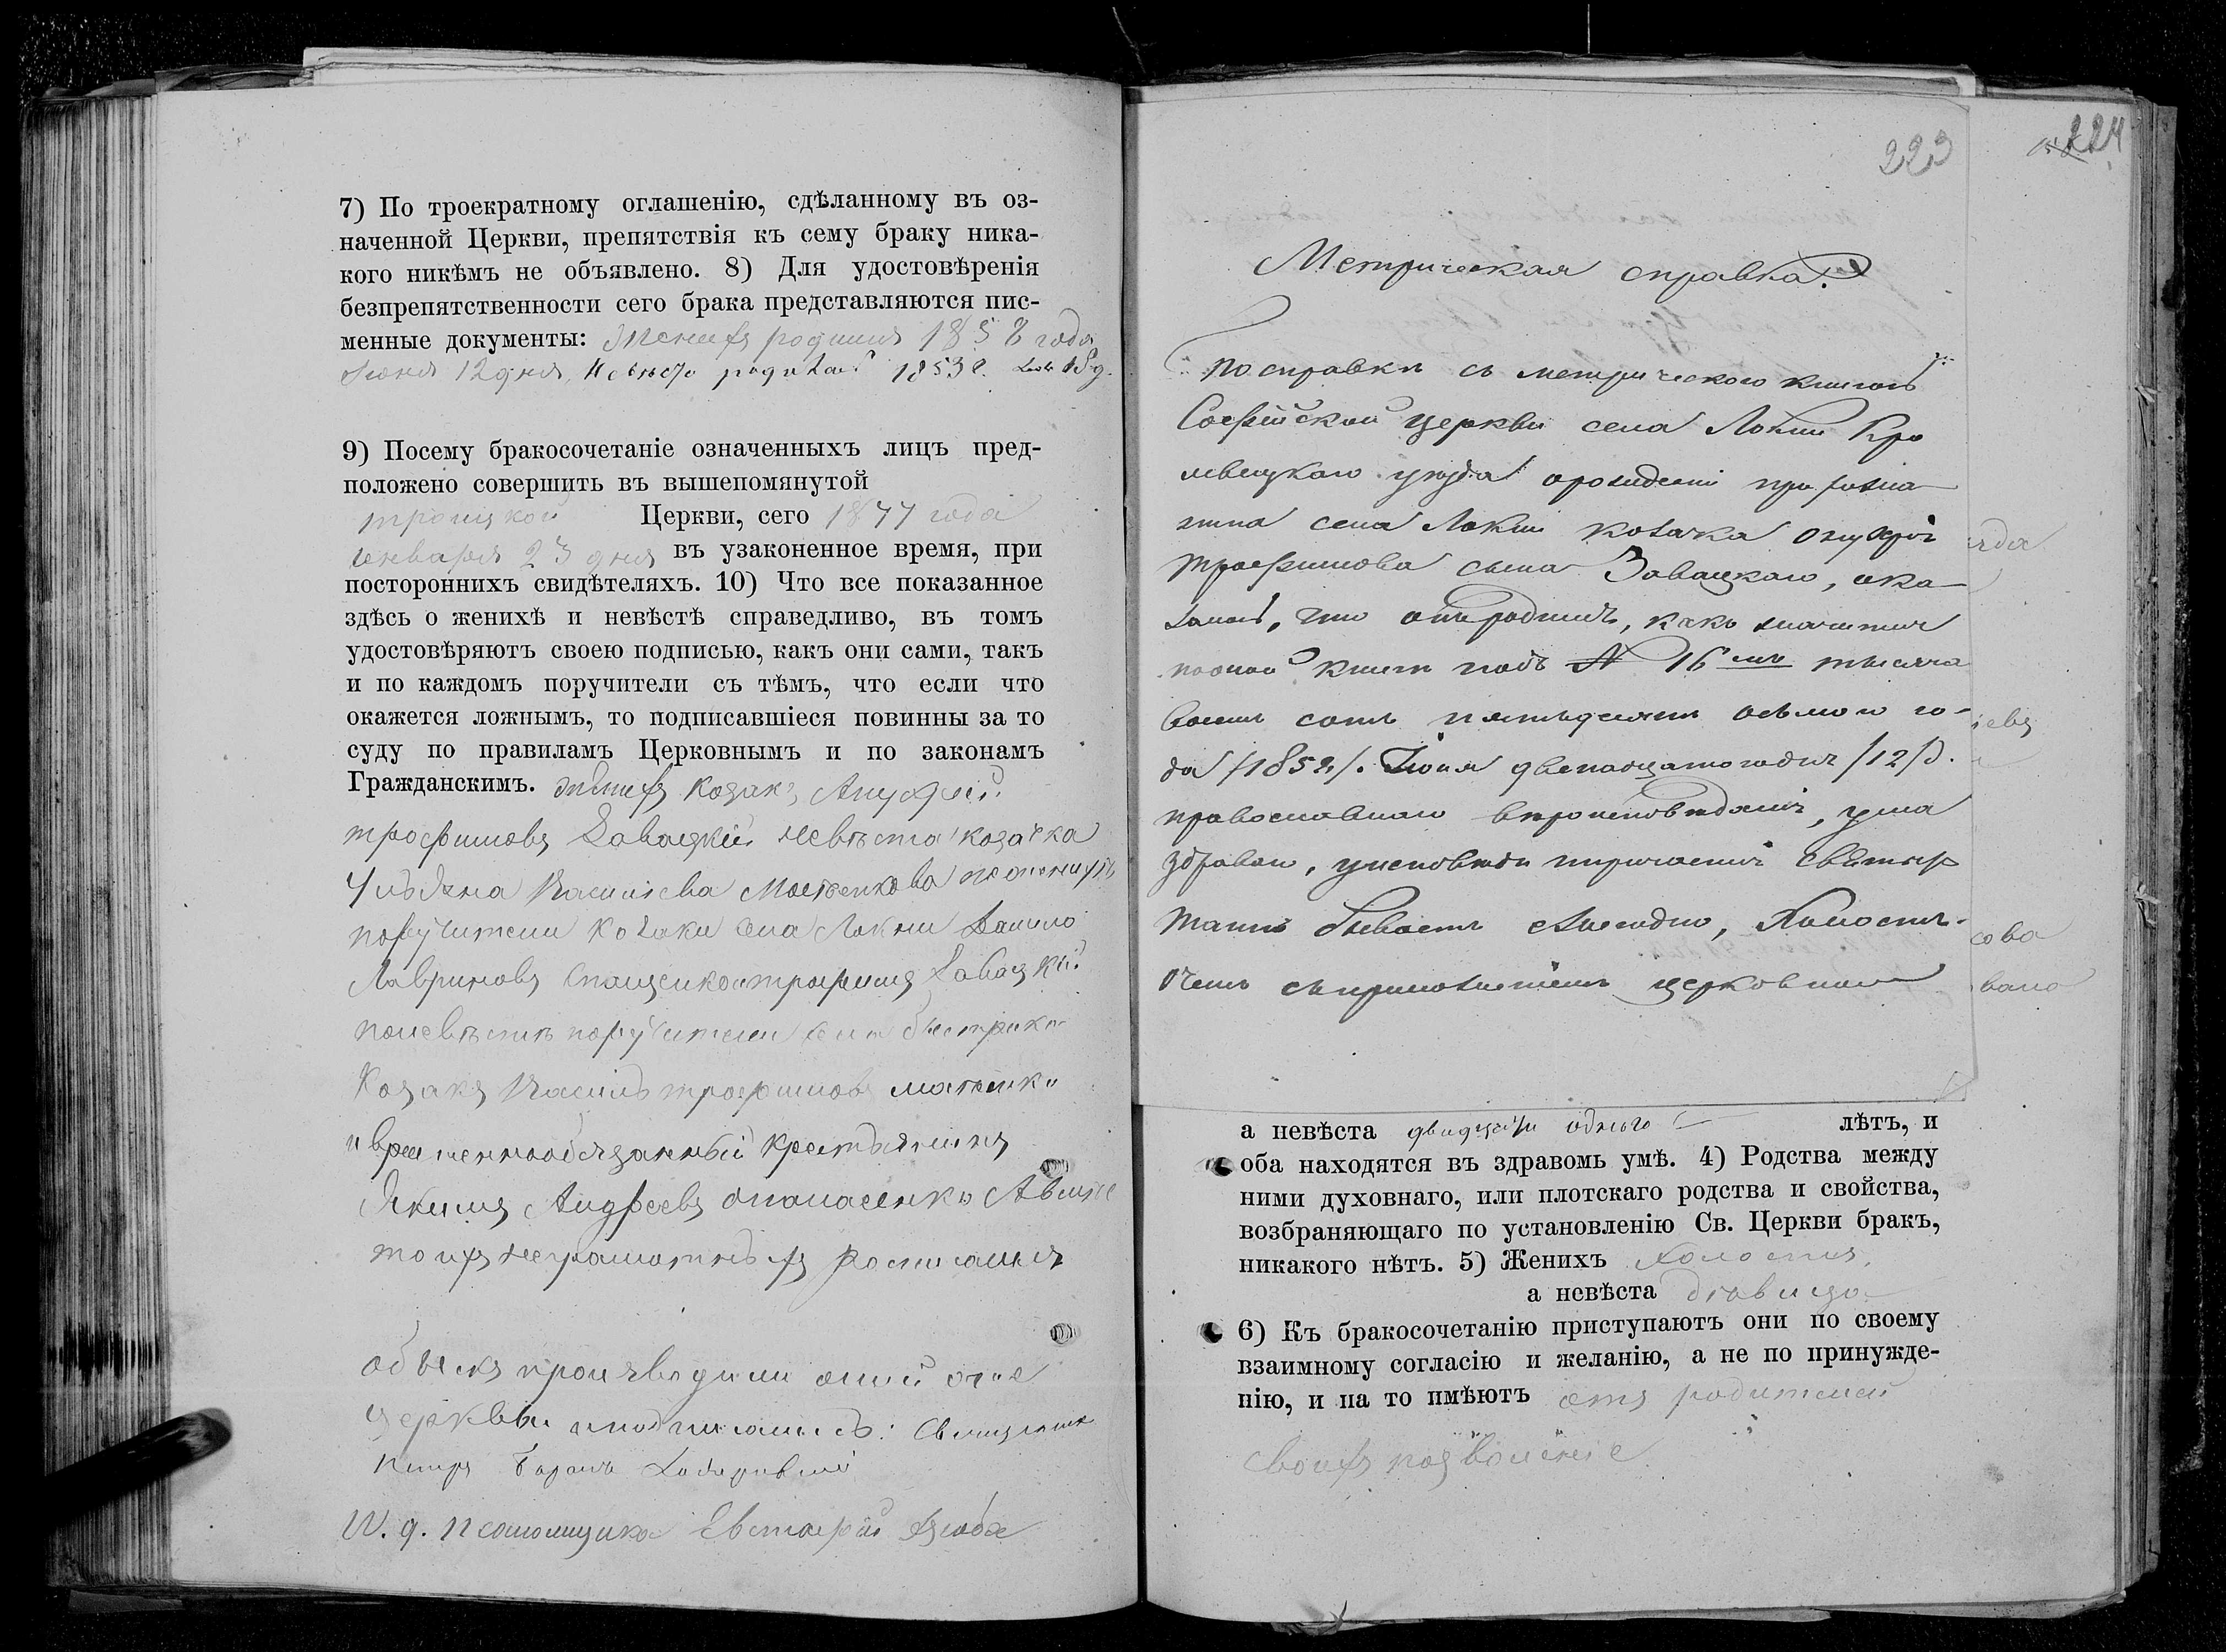 7) По троекратному оглашенію, сдѣланному въ оз-
наченной Церкви, препятствія къ сему браку ника-
кого никѣмъ не объявлено. 8) Для удостовѣренія
безпрепятственности сего брака представляются пис-
менные документы: Женихъ родился 1858 года
Іюня 12 дня, Невѣста родилась 1853 г.
9) Посему бракосочетаніе означенныхъ лицъ пред-
положено совершить въ вышепомянутой
троицкой Церкви, сего 1877 года
января 23 дня въ узаконенное время, при
постороннихъ свидѣтеляхъ. 10) Что все показанное
здѣсь о женихѣ и невѣстѣ справедливо, въ томъ
удостовѣряютъ своею подписью, какъ они сами, такъ
и по каждомъ поручители съ тѣмъ, что если что
окажется ложнымъ, то подписавшіеся повинны за то
суду по правиламъ Церковнымъ и по законамъ
Гражданскимъ. Козакъ Ануфрій
трофимовъ Завацкій невѣста козачка
Васильева по женихѣ
поручители козаки села Локни Данило
Лавриновъ трофимъ Завацкій
по невѣстѣ поручители села быстрика
Козакъ Василь трофимовъ
и временнообязанный крестьянинъ
Якимъ Андреевъ опанасенко А вмѣсто
ихъ неграмотныхъ росписался
обыскъ производили оной
церкви и подписались: Священникъ
Петръ
И. д. псаломщика Евстафій Дзюба
223
224
Метрическая справка.
По справкѣ съ метрическою книгою
Софійской церкви села Локни Кро
левецкаго уѣзда о рожденіи
села Локни козака Онуфрія
трофимова сына Завацкаго, ока
залось, что онъ родился, какъ значится
по оной книгѣ подъ № 16 мъ тысяча
восемь сотъ пятьдесятъ осьмого го-
да /1858/. Іюня двенацатого дня /12/.
православнаго вѣроисповѣданія, ума
здраваго, у исповѣди и причастія святыхъ
таинъ бываетъ ежегодно, Холостъ.
О чемъ съ приложеніемъ церковной
а невѣста двадцати одного лѣтъ, и
оба находятся въ здравомъ умѣ. 4) Родства между
ними духовнаго, или плотскаго родства и свойства,
возбраняющаго по установленію Св. Церкви бракъ,
никакого нѣтъ. 5) Женихъ холостъ,
а невѣста дѣвица
6) Къ бракосочетанію приступаютъ они по своему
взаимному согласію и желанію, а не по принужде-
нію, и на то имѣютъ отъ родителей
своихъ позволеніе